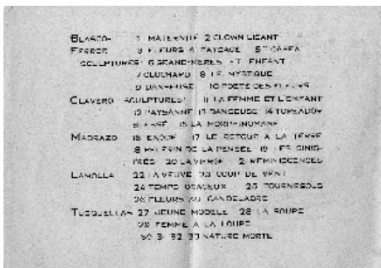 BLASCO- 1 MATERNITÉ 2 CLOWN LISANT
FERRER 3 FLEURS 4 PAYSAGE
SCULPTURES: 6 GRAND-MERES ET ENFANT
7 CLOCHARD 8 LE MYSTIQUE
9 DANSEUSE 10 POETE DES FLEURS
CLAVERO SCULPTURES: 11 LA FEMME ET L'ENFANT
12 PAYSANNE 13 DANSEUSE 14 TOREADOR
15 LA MORPHINOMANE
MADRAZO 16 EXODE 17 LE RETOUR A LA TERRE
18 PELERIN DE LA PENSEE 19 LES SINIS-
TRÉS 20 LA VIERGE 21 REMINISCENCES
LAMOLLA 22 LA VEUVE 23 COUP DE VENT
24 TEMPS ORAGEUX 25 TOURNESOLS
26 FLEURS AU CANDELABRE
TUSQUELLAS 27 JEUNE MODELE 28 LA SOUPE
29 FEMME A LA COUPE
30 31 32 33 NATURE MORTE